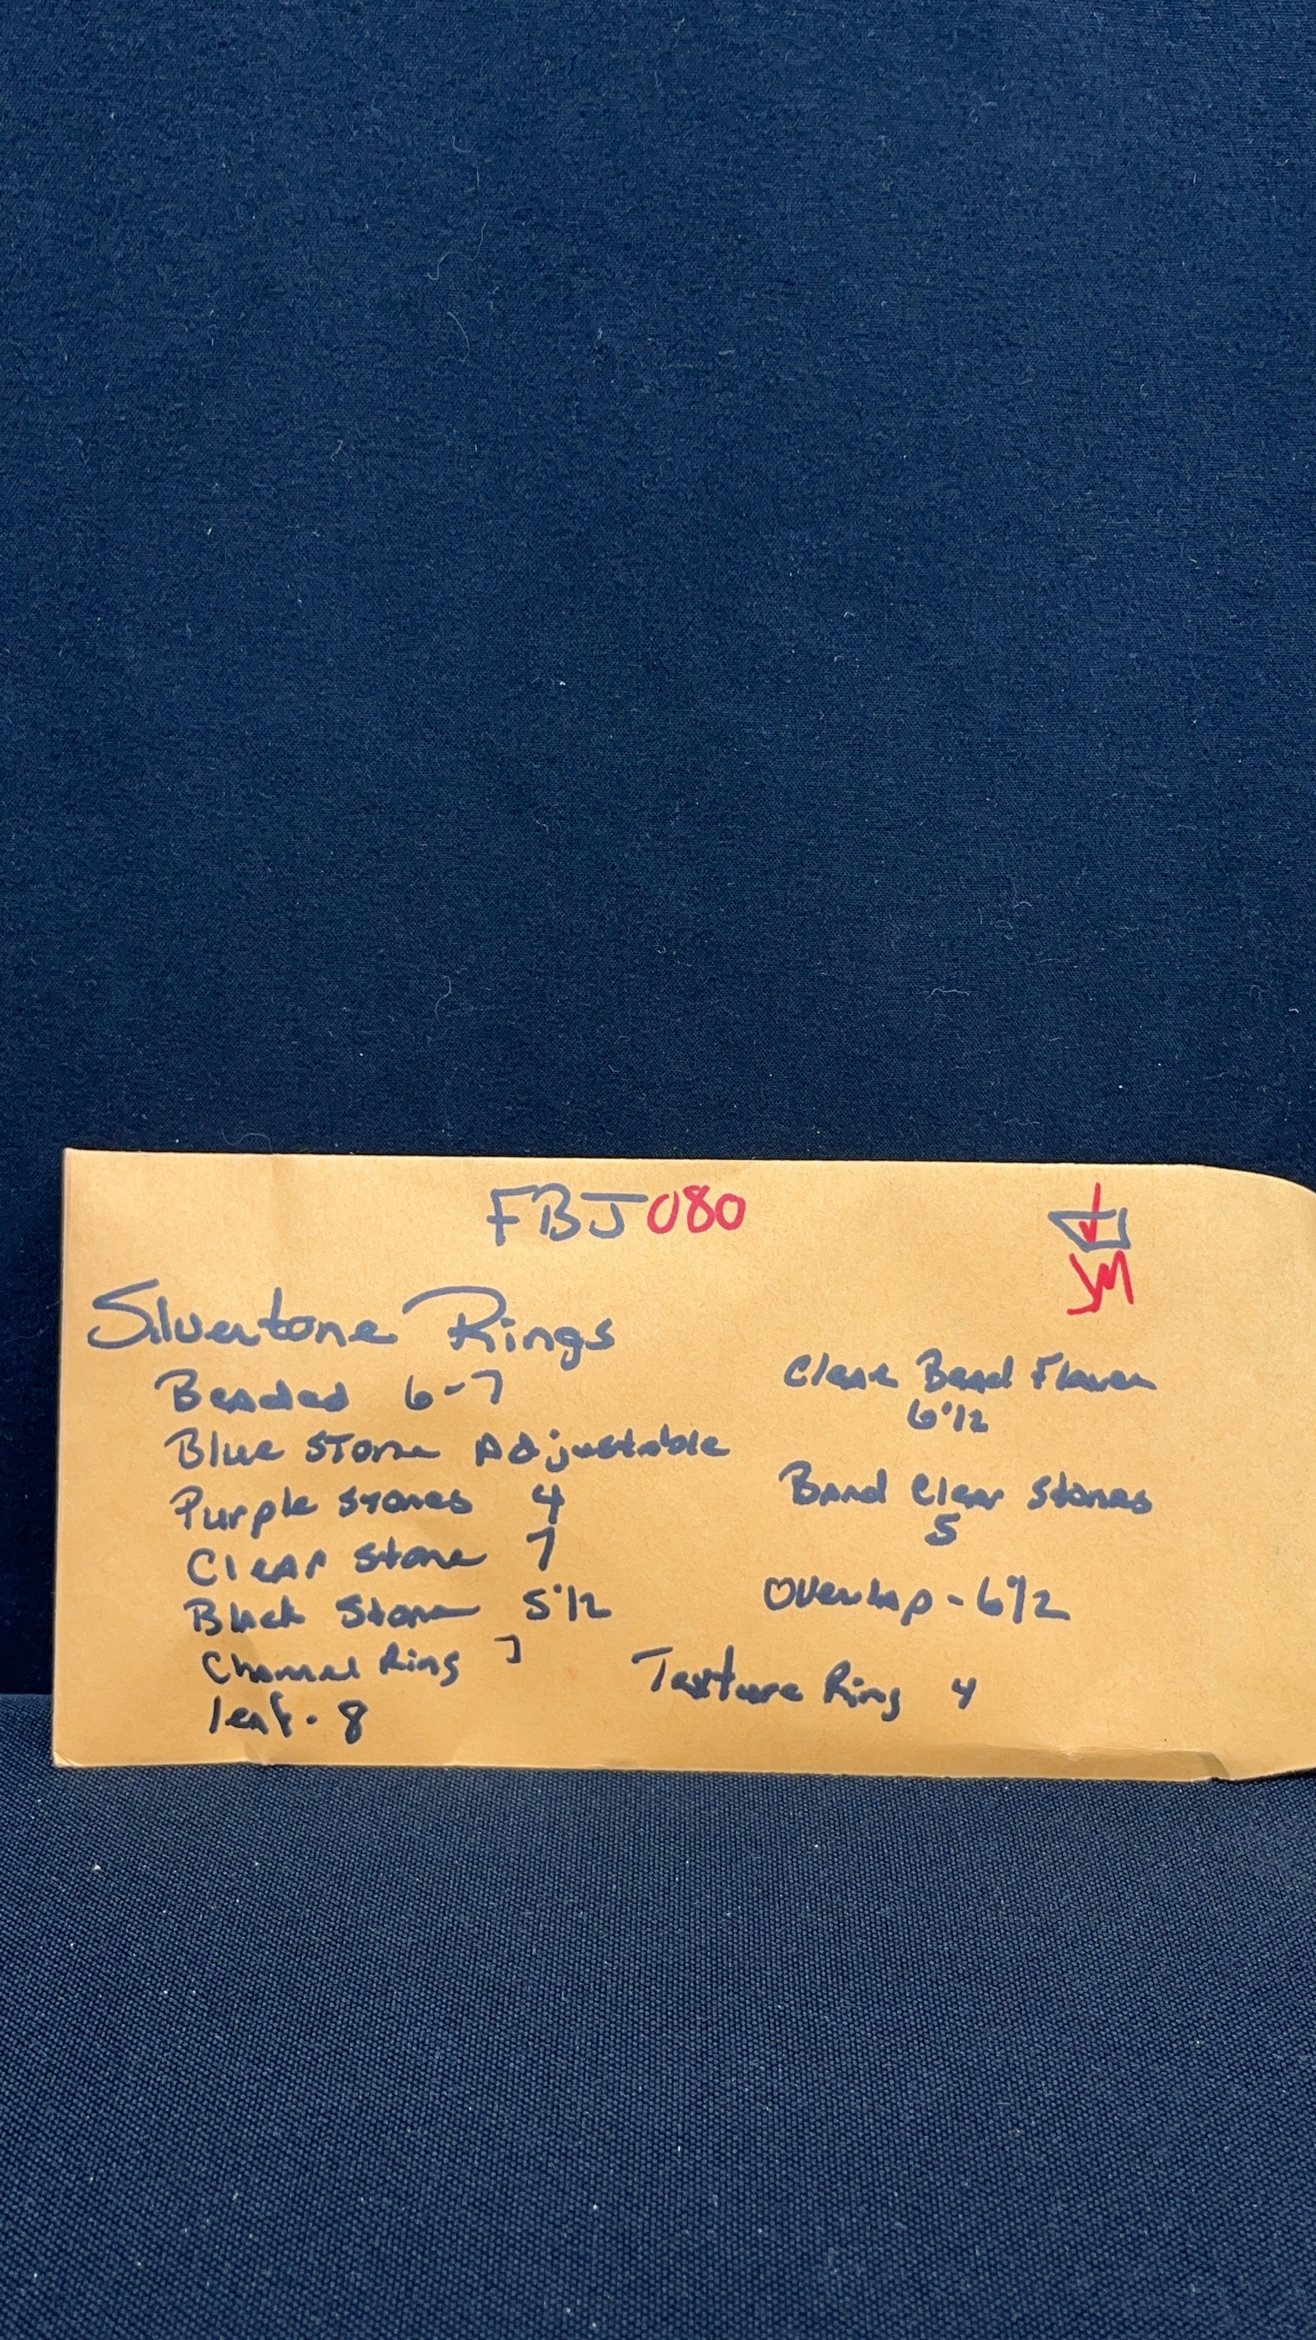 FBJ080
JM
Silvertone Rings
Beaded 6-7
Blue Stone Adjustable
Purple Stones 4
Clear Stone 7
Black Stone 5 1/2
Channel Ring 7
leaf - 8
Clear Bead Flower
6 1/2
Band Clear Stones
5
Overlap - 6 1/2
Texture Ring 4